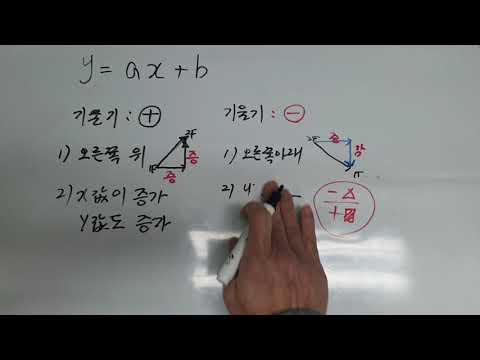 y = ax + b
기울기 : +
1) 오른쪽 위
2F
증
1F
증
2) x값이 증가
y값도 증가
기울기 : −
1) 오른쪽아래
2F
증
감
1F
2)
−△
+